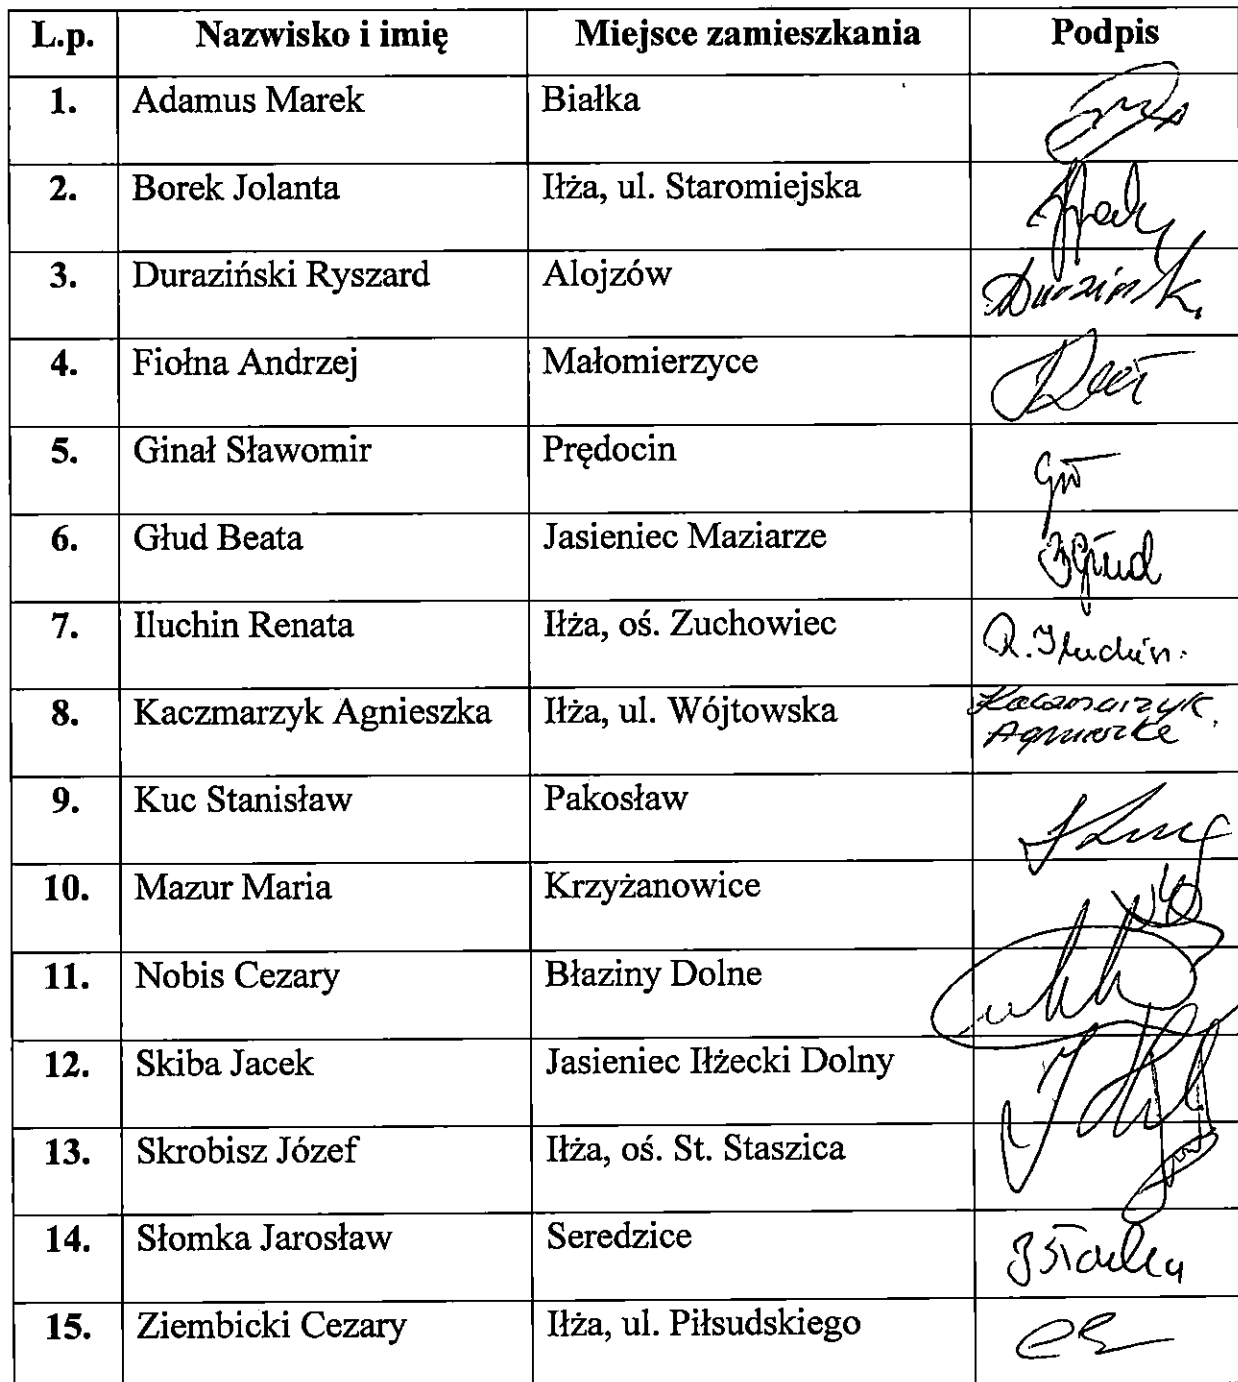 L.p. Nazwisko i imię Miejsce zamieszkania Podpis
1. Adamus Marek Białka
2. Borek Jolanta Iłża, ul. Staromiejska
3. Duraziński Ryszard Alojzów
4. Fiołna Andrzej Małomierzyce
5. Ginał Sławomir Prędocin
6. Głud Beata Jasieniec Maziarze BGłud
7. Iluchin Renata Iłża, oś. Zuchowiec R. Iluchin.
8. Kaczmarzyk Agnieszka Iłża, ul. Wójtowska Kaczmarzyk
Agnieszka
9. Kuc Stanisław Pakosław
10. Mazur Maria Krzyżanowice
11. Nobis Cezary Błaziny Dolne
12. Skiba Jacek Jasieniec Iłżecki Dolny
13. Skrobisz Józef Iłża, oś. St. Staszica
14. Słomka Jarosław Seredzice
15. Ziembicki Cezary Iłża, ul. Piłsudskiego